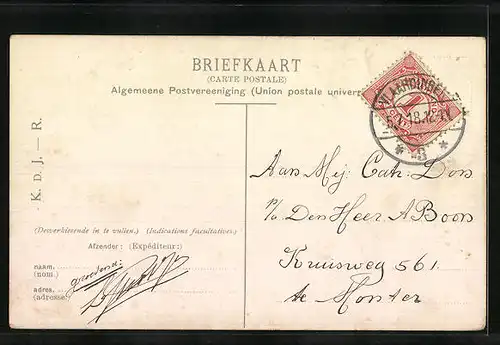 BRIEFKAART
(CARTE POSTALE)
Algemeene Postvereeniging (Union postale univer
VLAARDINGEN
K. D. J. — R.
Aan Mej: Cath: Don
p/a Den Heer A Boon
Kruisweg 561
te Monster
(Dewerkierende in te vullen.) (Indications facultatives.)
Afzender: (Expéditeur:)
naam.
(nom.)
groetend:
adres.
(adresse.)